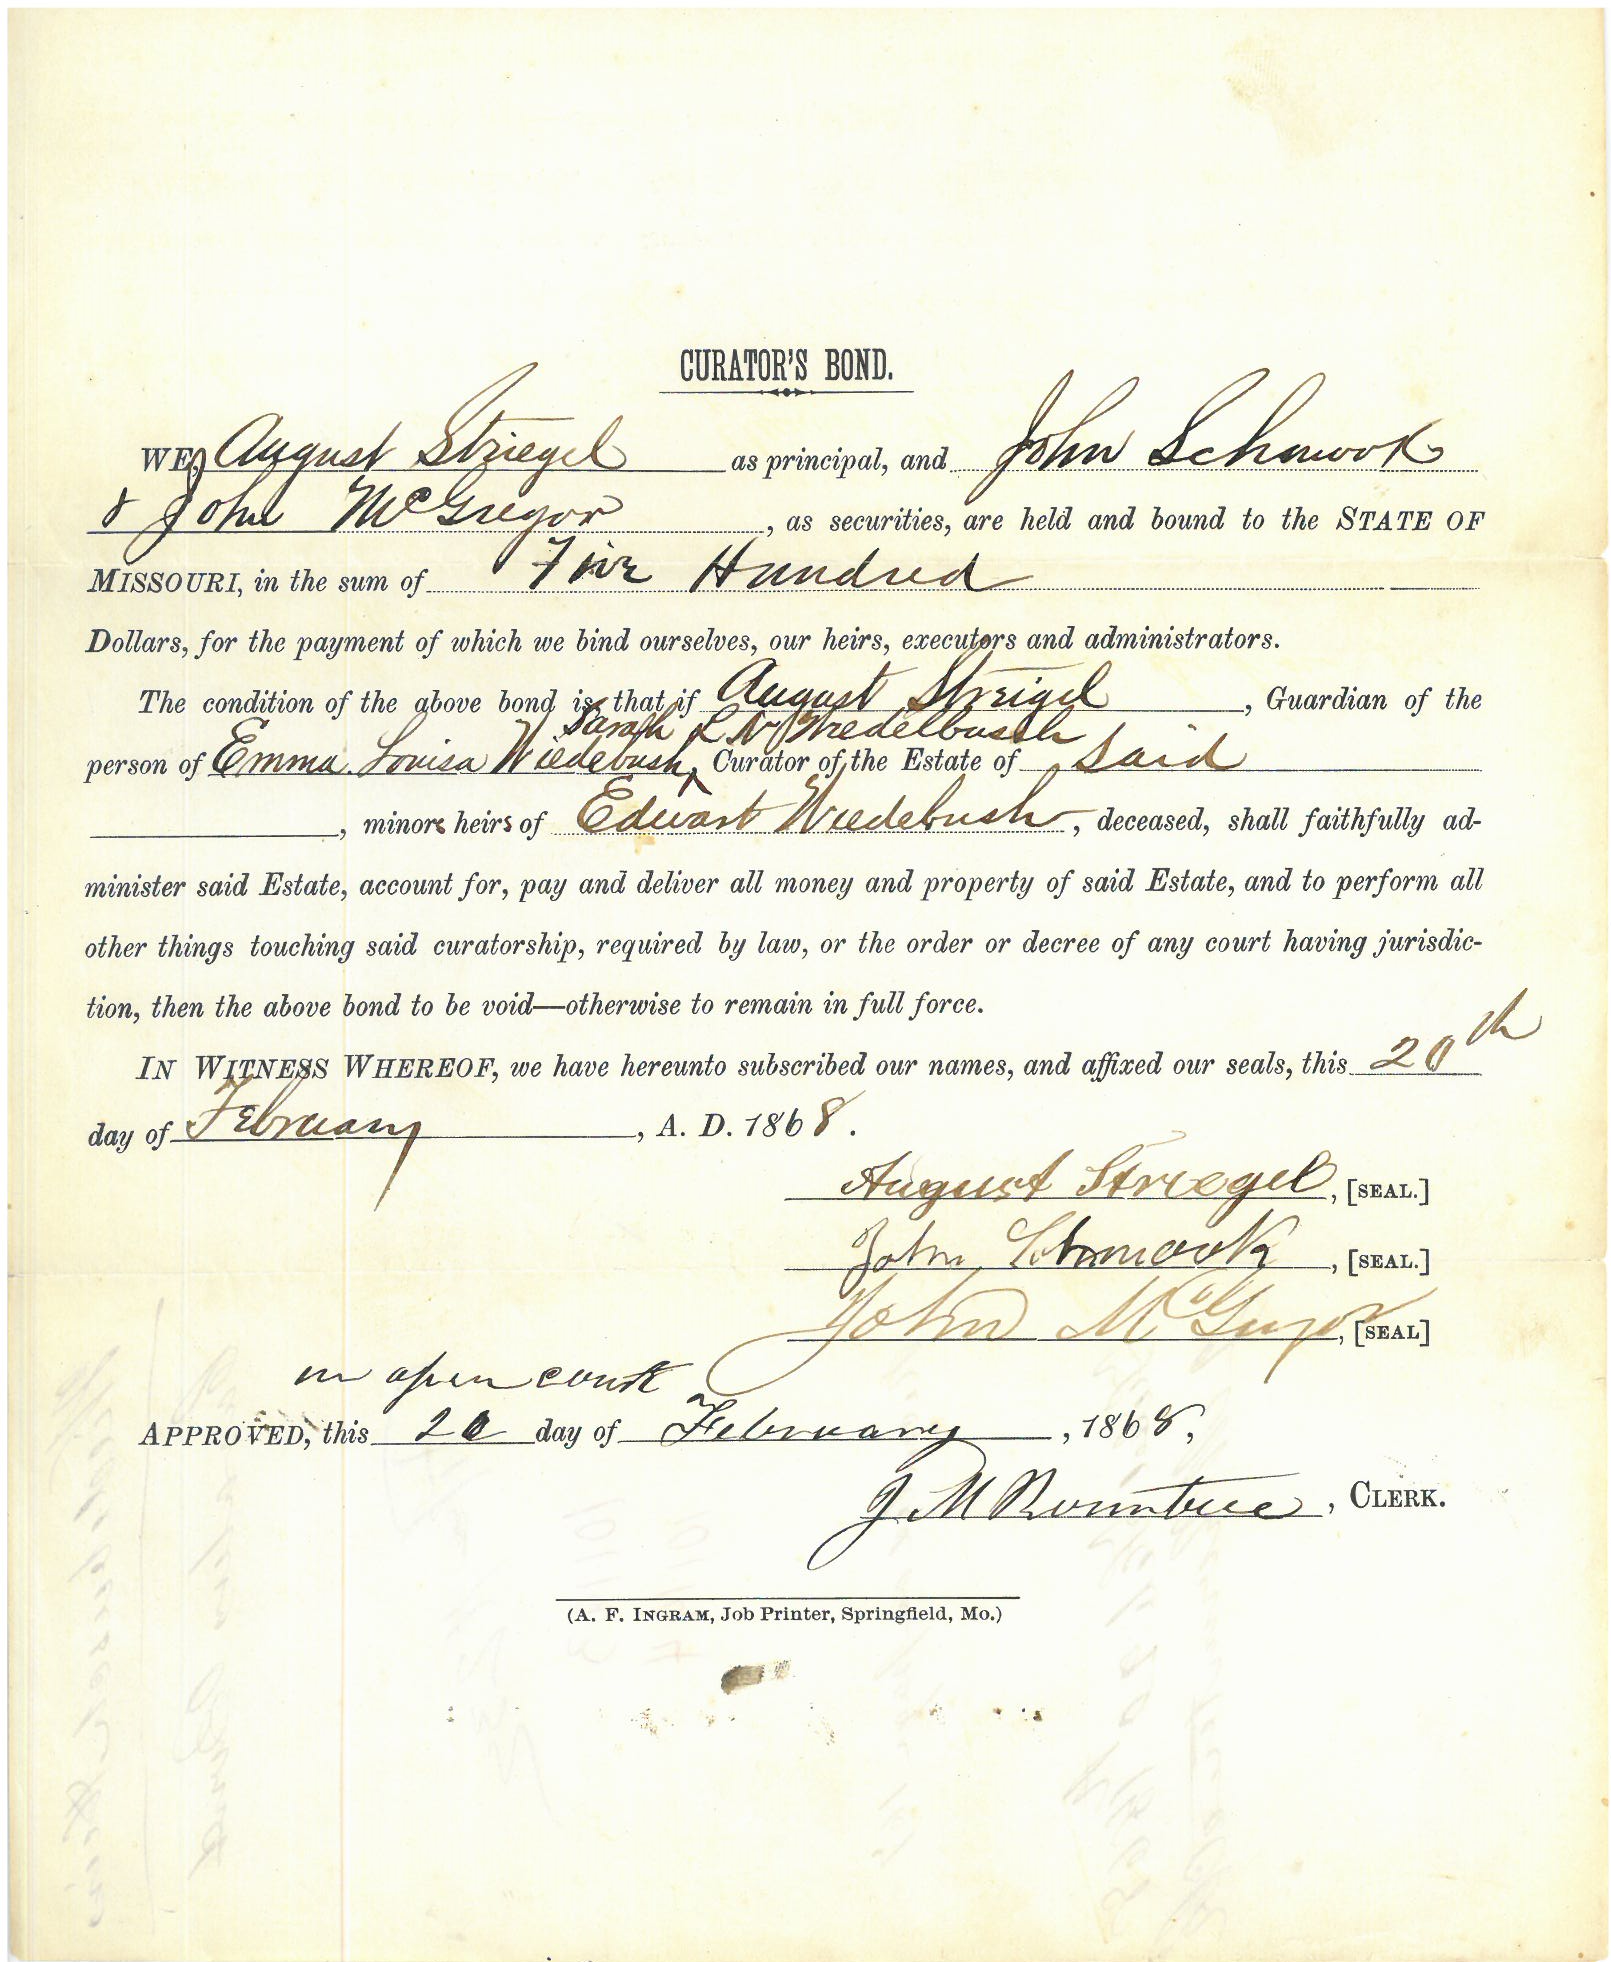 CURATOR'S BOND.
WE, August Striegel as principal, and John Schmook
& John McGregor, as securities, are held and bound to the STATE OF
MISSOURI, in the sum of Five Hundred
Dollars, for the payment of which we bind ourselves, our heirs, executors and administrators.
The condition of the above bond is, that if August Streigel, Guardian of the
Sarah L N Wiedelbusch
person of Emma Louisa Wiedebush, Curator of the Estate of Said
, minors heirs of Edwart Wiedebush, deceased, shall faithfully ad-
minister said Estate, account for, pay and deliver all money and property of said Estate, and to perform all
other things touching said curatorship, required by law, or the order or decree of any court having jurisdic-
tion, then the above bond to be void—otherwise to remain in full force.
IN WITNESS WHEREOF, we have hereunto subscribed our names, and affixed our seals, this 20th
day of February, A. D. 1868.
August Striegel, [SEAL.]
John Schmook, [SEAL.]
John McGregor, [SEAL]
in open court
APPROVED, this 20 day of February, 1868,
J M Rountree, CLERK.
(A. F. INGRAM, Job Printer, Springfield, Mo.)